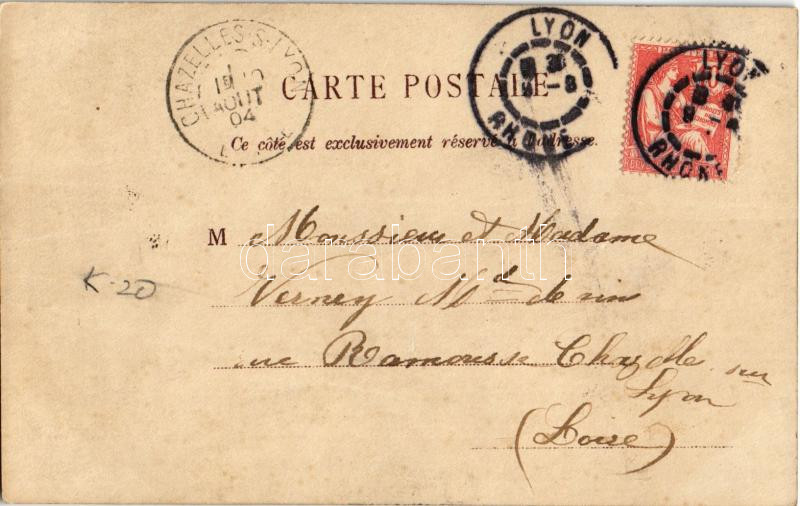 CHAZELLES-S-LYON
AOUT
04
LYON
RHONE
LYON
RHONE
CARTE POSTALE
Ce côté est exclusivement réservé à l'adresse.
M Monsieur et Madame
Verney Md de vin
rue Ramousse Chazelle sur
Lyon
(Loire)
K-20
darabanth